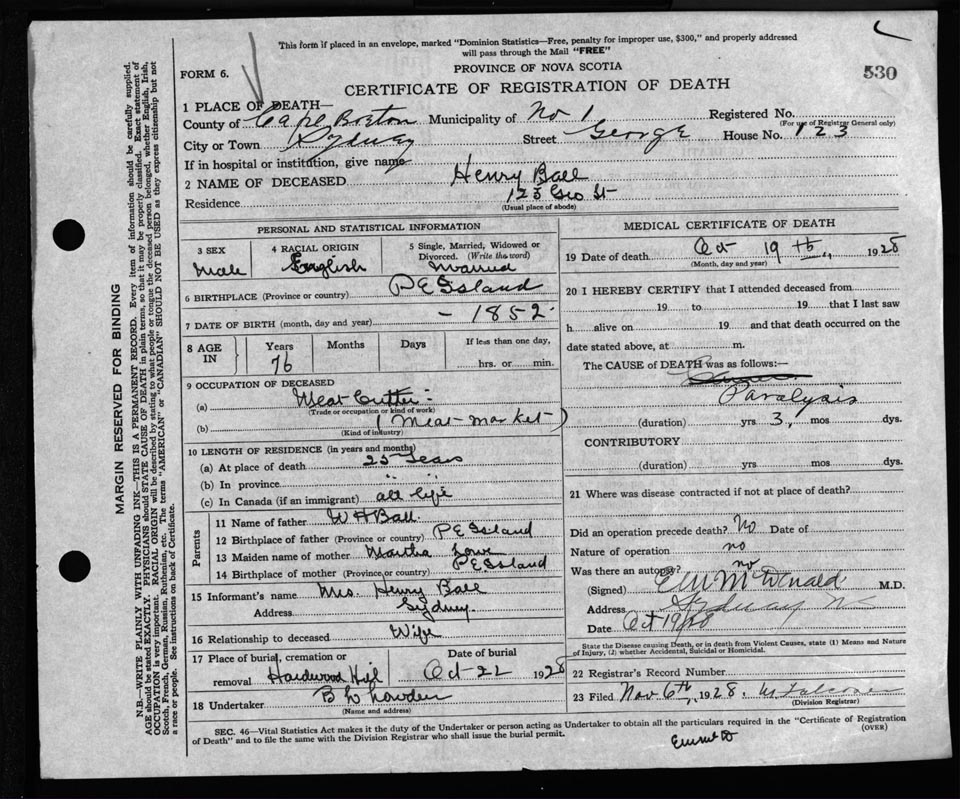 This form if placed in an envelope, marked "Dominion Statistics—Free, penalty for improper use, $300," and properly addressed
will pass through the Mail "FREE"
FORM 6.
PROVINCE OF NOVA SCOTIA
530
CERTIFICATE OF REGISTRATION OF DEATH
1 PLACE OF DEATH—
County of Cape Breton Municipality of No 1 Registered No.
(For use of Registrar General only)
City or Town Sydney Street George House No. 123
If in hospital or institution, give name
2 NAME OF DECEASED Henry Ball
Residence 123 Geo St
(Usual place of abode)
PERSONAL AND STATISTICAL INFORMATION
3 SEX
Male
4 RACIAL ORIGIN
English
5 Single, Married, Widowed or
Divorced. (Write the word)
Married
6 BIRTHPLACE (Province or country) P E Island
7 DATE OF BIRTH (month, day and year) – 1852
8 AGE IN
Years Months Days If less than one day,
76 hrs. or min.
9 OCCUPATION OF DECEASED
(a) Meat Cutter
(Trade or occupation or kind of work)
(b) (Meat-market)
(Kind of industry)
10 LENGTH OF RESIDENCE (in years and months)
(a) At place of death 25 Years
(b) In province " "
(c) In Canada (if an immigrant) all life
Parents
11 Name of father W H Ball
12 Birthplace of father (Province or country) P E Island
13 Maiden name of mother Martha Lowe
14 Birthplace of mother (Province or country) P E Island
15 Informant's name Mrs. Henry Ball
Address Sydney
16 Relationship to deceased Wife
17 Place of burial, cremation or removal Hardwood Hill
Date of burial
Oct 22 1928
18 Undertaker
(Name and address)
MEDICAL CERTIFICATE OF DEATH
19 Date of death Oct 19th, 1928
(Month, day and year)
20 I HEREBY CERTIFY that I attended deceased from
19 to 19 that I last saw
h alive on 19 and that death occurred on the
date stated above, at m.
The CAUSE of DEATH was as follows:—
Paralysis
(duration) yrs 3 mos dys.
CONTRIBUTORY
(duration) yrs mos dys.
21 Where was disease contracted if not at place of death?
Did an operation precede death? No Date of
Nature of operation no
Was there an autopsy? no
(Signed) McDonald M.D.
Address Sydney
Date Oct 19/28
State the Disease causing Death, or in death from Violent Causes, state (1) Means and Nature
of Injury, (2) whether Accidental, Suicidal or Homicidal.
22 Registrar's Record Number
23 Filed Nov. 6th, 1928.
(Division Registrar)
SEC. 46—Vital Statistics Act makes it the duty of the Undertaker or person acting as Undertaker to obtain all the particulars required in the "Certificate of Registration
of Death" and to file the same with the Division Registrar who shall issue the burial permit.
(OVER)
MARGIN RESERVED FOR BINDING
N.B.—WRITE PLAINLY WITH UNFADING INK—THIS IS A PERMANENT RECORD. Every item of information should be carefully supplied.
AGE should be stated EXACTLY. PHYSICIANS should STATE CAUSE OF DEATH in plain terms, so that it may be properly classified. Exact statement of
OCCUPATION is very important. RACIAL ORIGIN will be described by stating to what people or tongue the deceased person belonged, whether English, Irish,
Scotch, French, German, Russian, Ruthenian, etc. The terms "AMERICAN" or "CANADIAN" SHOULD NOT BE USED as they express citizenship but not
a race or people. See instructions on back of Certificate.